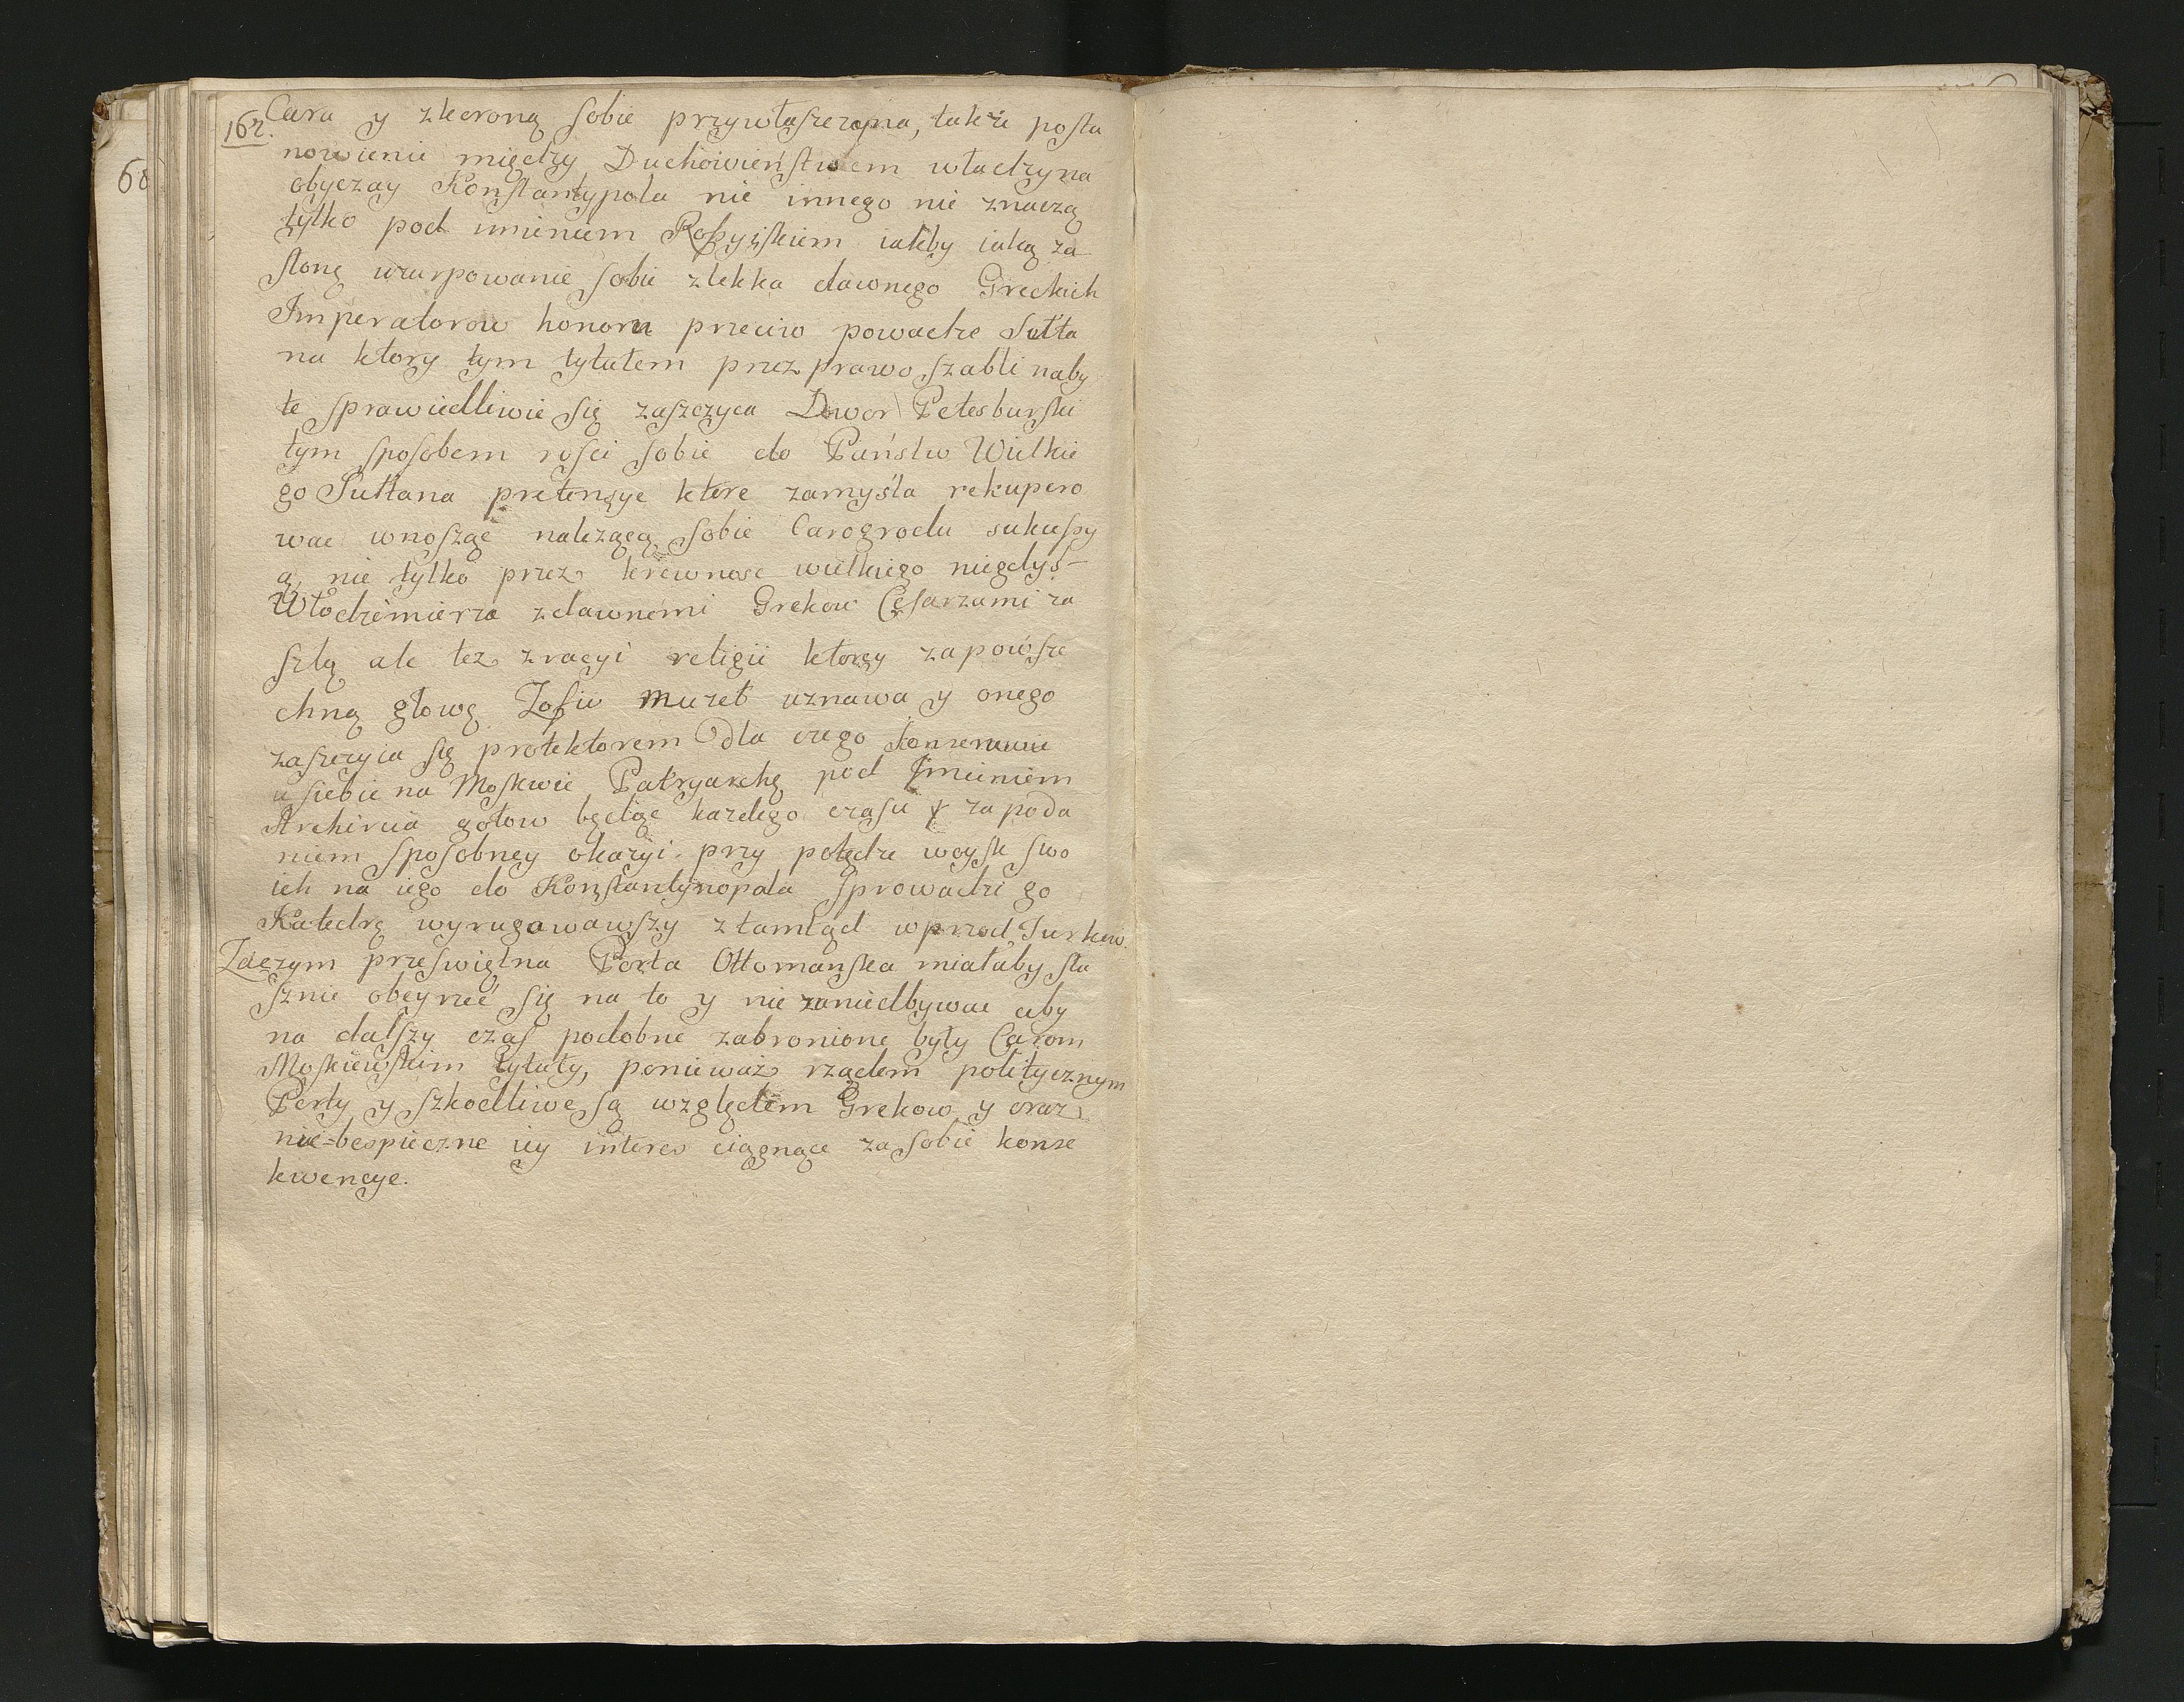 162.
Cara y zkoroną sobie przywłaszczona, także posta
nowienie między Duchowieństwem władzy na
obyczay Konstantypola nie innego nie znaczą
tylko pod imieniem Rossyiskiem iakby iaką za
słoną uzurpowanie sobie zlekka dawnego Greckich
Imperatorow honoru przeciw powadze Sułta
na ktory tym tytułem przez prawo szabli naby
te sprawiedliwie się zaszczyca Dwor Petesburski
tym sposobem rosci sobie do Państw Wielkie
go Sułtana pretensye ktore zamyśla rekupero
wac wnosząc należącą sobie Carogrodu sukussy
ą, nie tylko przez krewnosc wielkiego niegdyś-
Włodzimierza zdawnemi Grekow Cesarzami za
szlą ale tez zracyi religii ktorey zapowsze
chną głowę uznawa y onego
zaszczyca się protektorem Dla czego konserwuie
u siebie na Moskwie Patryarchę pod Jmieniem
Archireia gotow będąc kazdego czasu za poda
niem sposobney okazyi przy potędze woysk swo
ich na iego do Konstantynopola sprowadzi go
Katedrę wyrugowawszy ztamtąd wprzod Turkow.
Zaczym prześwietna Porta Ottomanska miałaby słu
sznie obeyrzeć się na to y nie zaniedbywac aby
na dalszy czas podobne zabronione były Carom
Moskiewskim tytuły, ponieważ rządem politycznym
Porty y szkodliwe są względem Grekow y oraz
nie=bespieczne iey interes ciągnące za sobie konse
kwencye.